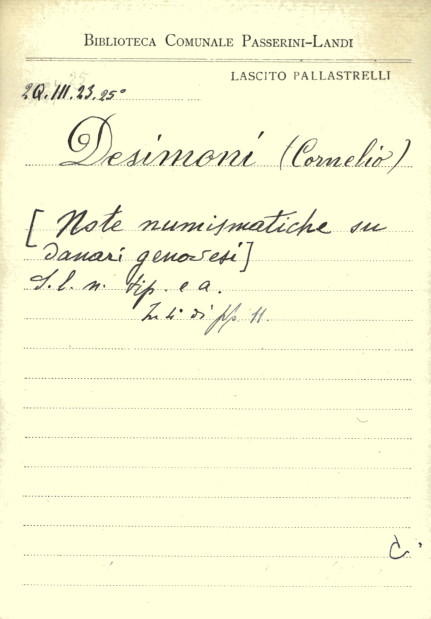 BIBLIOTECA COMUNALE PASSERINI-LANDI
LASCITO PALLASTRELLI
2Q.III.23.25°
Desimoni (Cornelio)
[Note numismatiche su
danari genovesi]
S. l. n. tip. e a.
In 4° di pp 11.